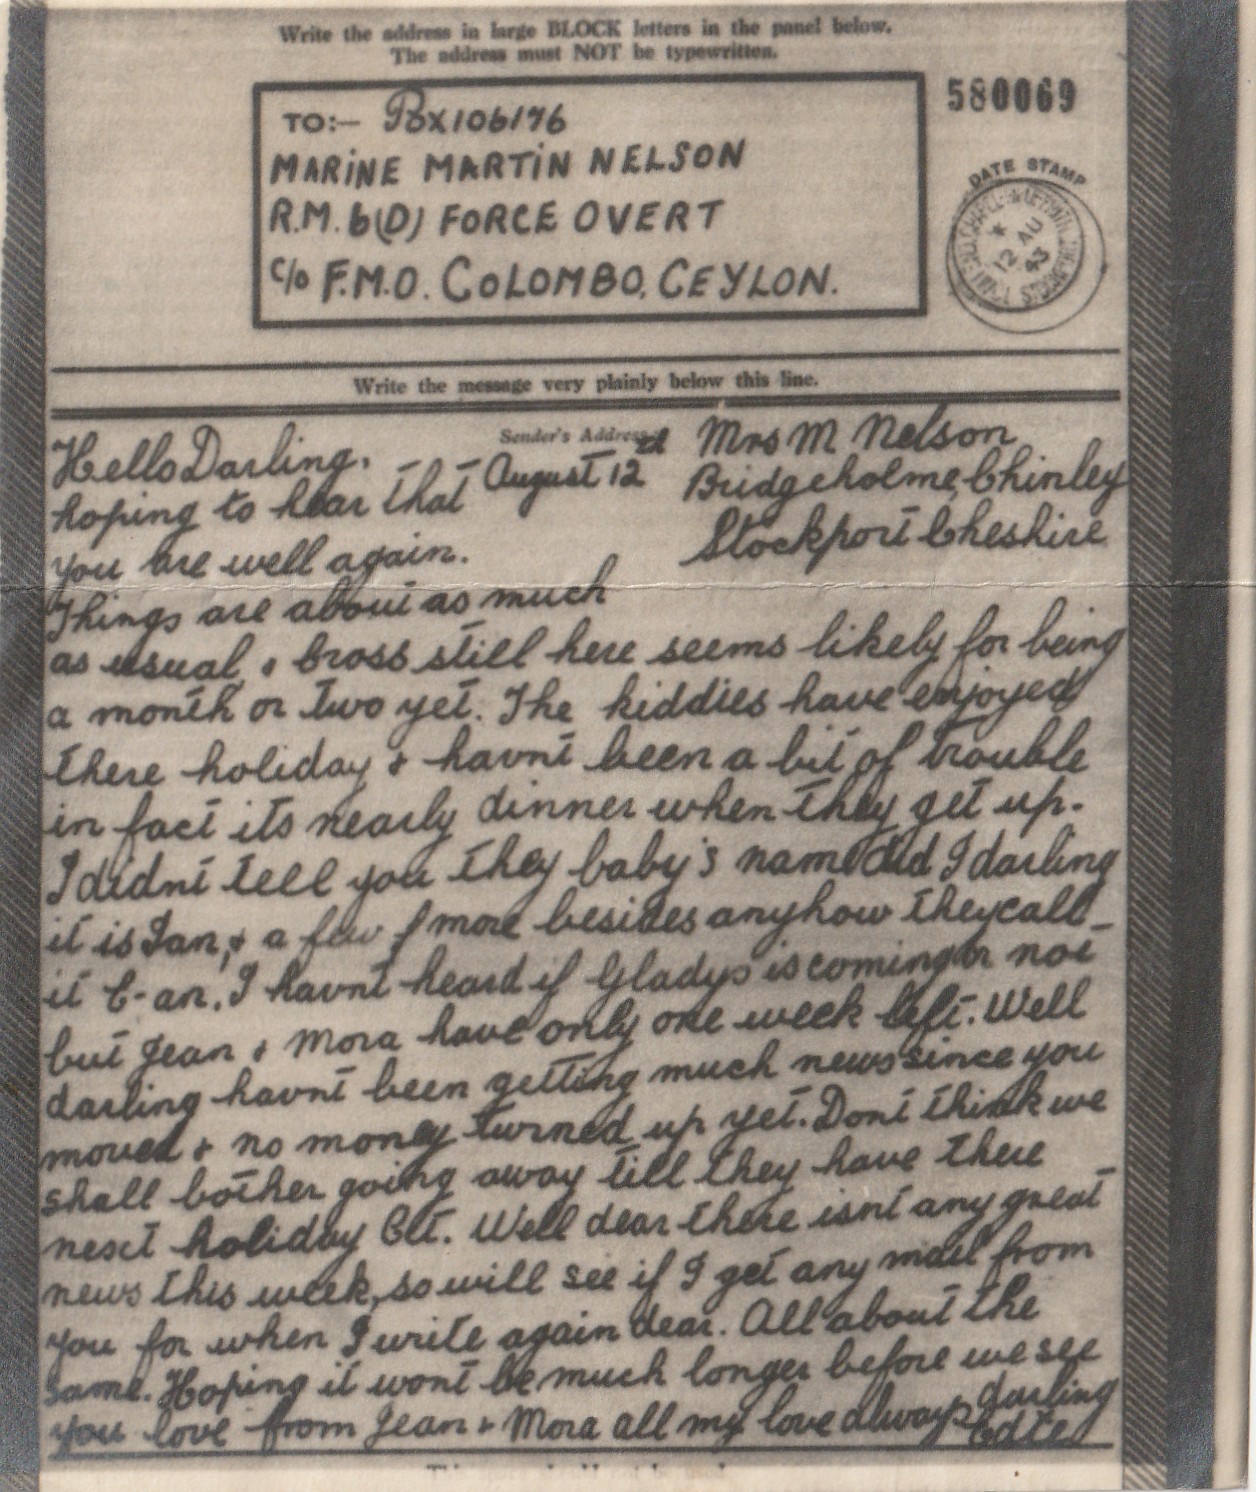 Write the address in large BLOCK letters in the panel below.
The address must NOT be typewritten.
580069
TO:— Pox106176
MARINE MARTIN NELSON
R.M. 6(D) FORCE OVERT
c/o F.M.O. COLOMBO, CEYLON.
DATE STAMP
12 AU
43
Write the message very plainly below this line.
Sender's Address
Mrs M Nelson
Bridgeholme, Chinley
Stockport Cheshire
August 12
Hello Darling,
hoping to hear that
you are well again.
Things are about as much
as usual, & Cross still here seems likely for being
a month or two yet. The kiddies have enjoyed
there holiday & havnt been a bit of trouble
in fact its nearly dinner when they get up.
I didnt tell you they baby's name did I darling
it is Ian, & a few more besides anyhow they call
it E-an. I havnt heard if Gladys is coming or not
but Jean & Mora have only one week left. Well
darling havnt been getting much news since you
moved & no money turned up yet. Dont think we
shall bother going away till they have there
next holiday Oct. Well dear there isnt any great
news this week, so will see if I get any mail from
you for when I write again dear. All about the
same. Hoping it wont be much longer before we see
you love from Jean & Mora all my love always darling